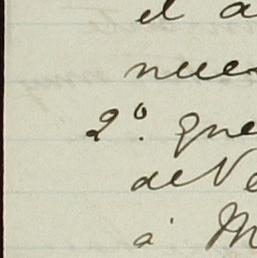 el a
nues
2º. que
de Ve
á M